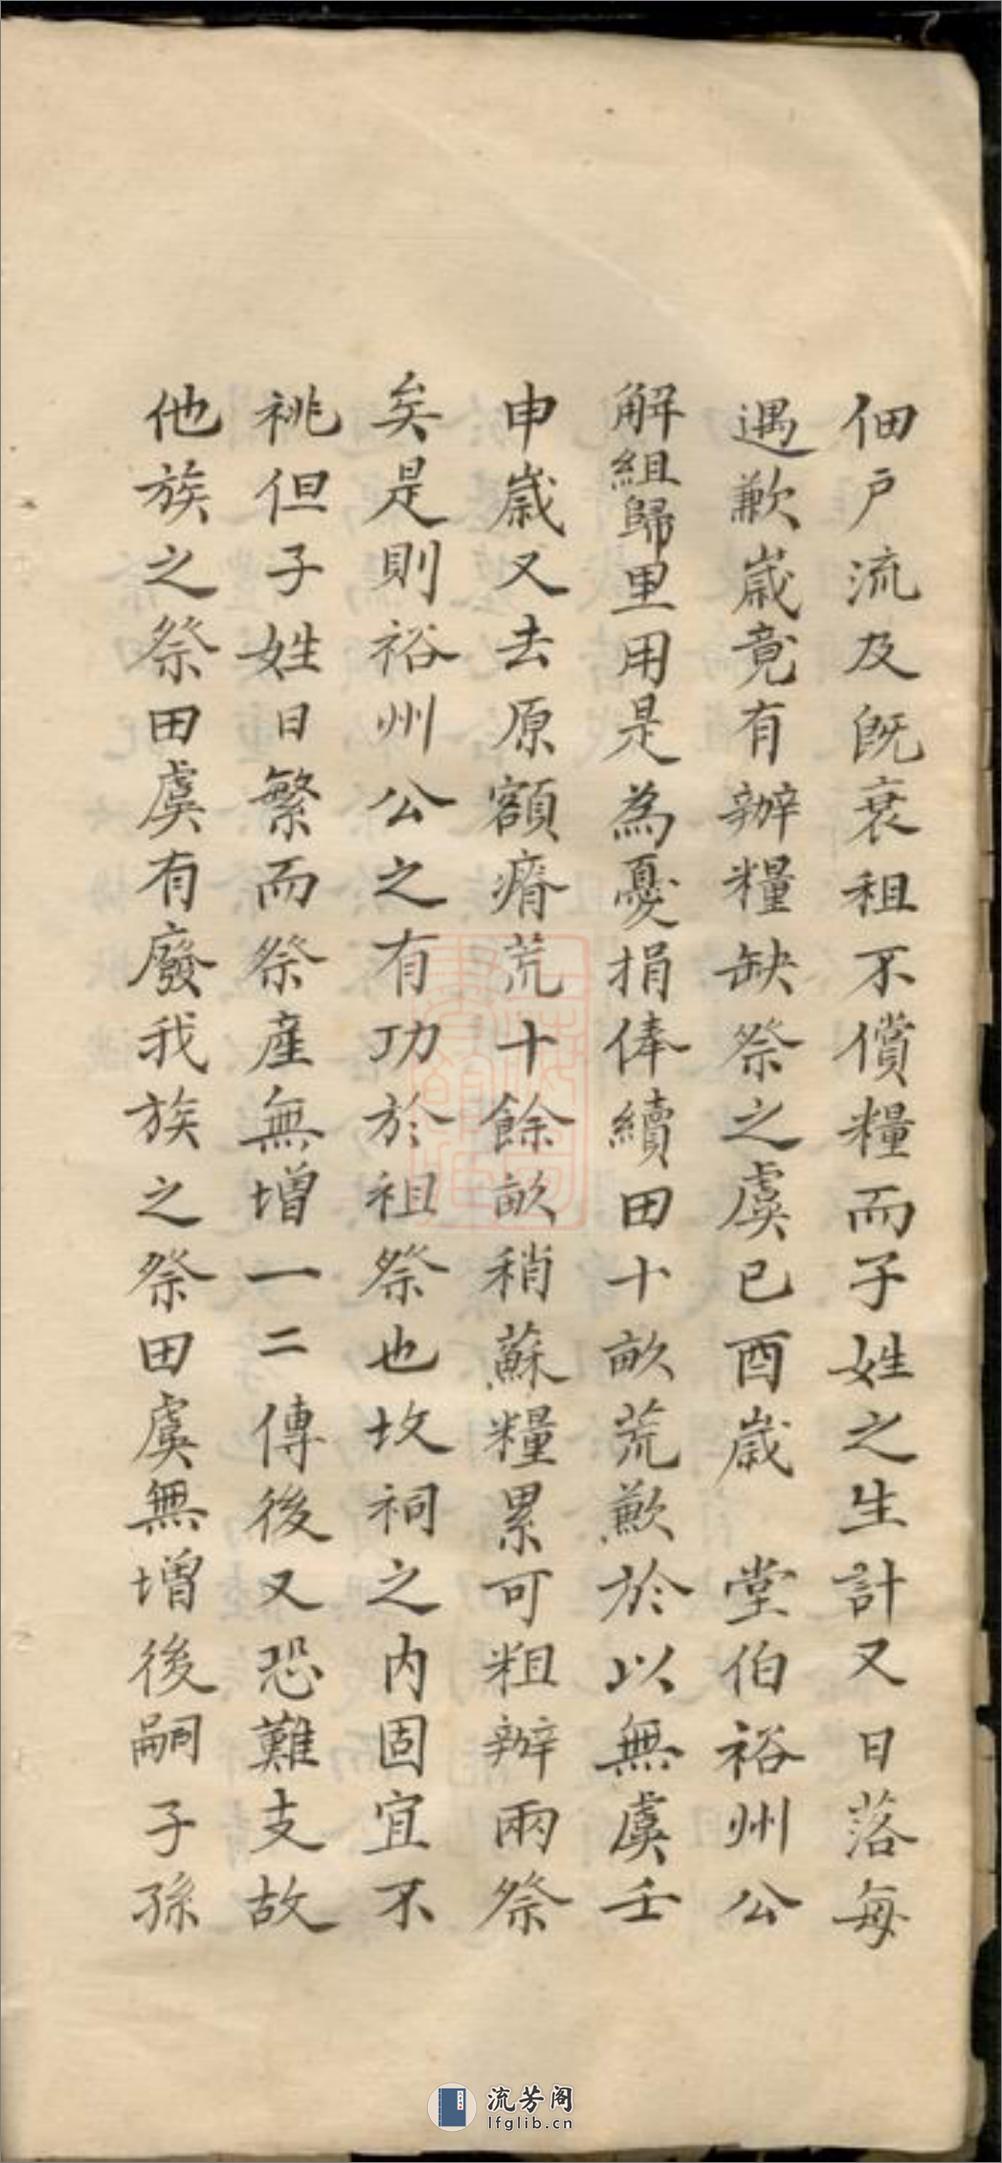 佃戶流及既衰租不償糧而子姓之生計又日落每
遇歉歲竟有辦糧缺祭之虞已酉歲　堂伯裕州公
解組歸里用是為憂捐俸續田十畝荒歉於以無虞壬
申歲又去原額瘠荒十餘畝稍蘇糧累可粗辦兩祭
矣是則裕州公之有功於祖祭也坟祠之內固宜不
祧但子姓日繁而祭產無增一二傳後又恐難支故
他族之祭田虞有廢我族之祭田虞無增後嗣子孫
流芳阁
lfglib.cn